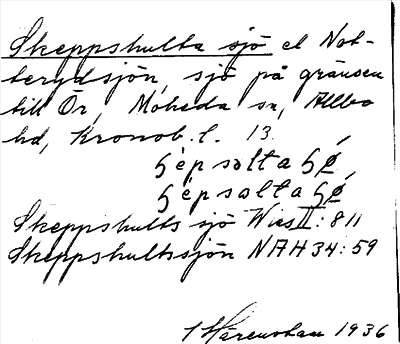 Skeppshulta sjö el Not-
terydsjön, sjö på gränsen
till Ör, Moheda sn, Allbo
hd, Kronob. l. 13.
ɧèpsolta ɧǿ,
ɧèpsalta ɧǿ,
Skeppshults sjö Wies II: 811
Skeppshultssjön NAH 34: 59
1936